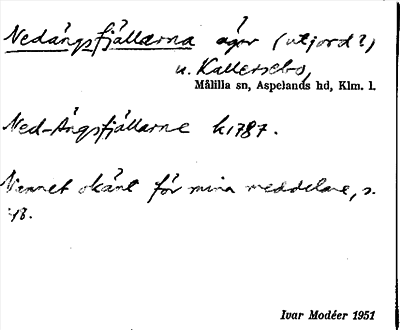 Nedängsfjällarna ägor (utjord?)
u. Kallersebo,
Målilla sn, Aspelands hd, Klm. l.
Ned-Ängsfjällarne k1787.
Namnet okänt för mina meddelare, s.
Ivar Modéer 1951